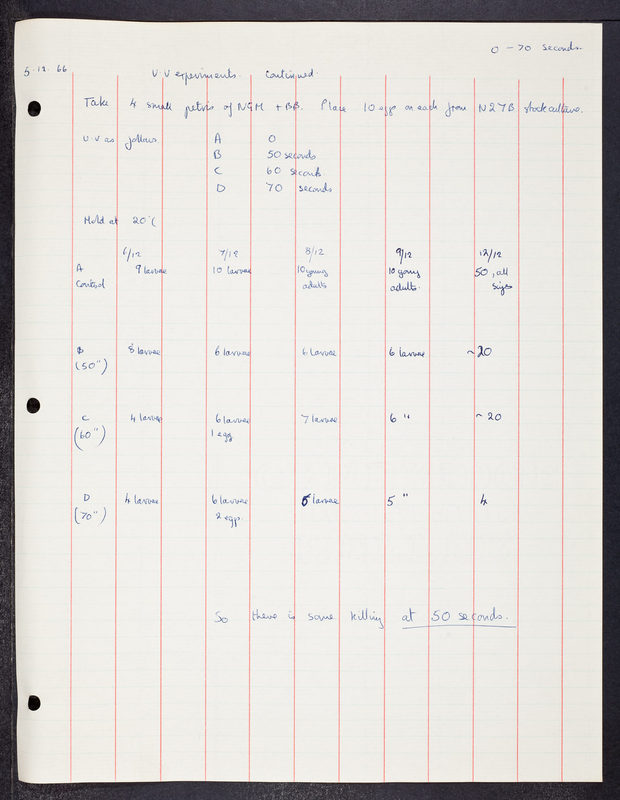 0 - 70 seconds.
5.12.66 U V experiments. Continued.
Take 4 small petris of NGM + BB. Place 10 eggs on each from N2YB stock culture.
U.V as follows A 0
B 50 seconds
C 60 seconds
D 70 seconds
Held at 20°C
6/12 7/12 8/12 9/12 12/12
A 9 larvae 10 larvae 10 young 10 young 50, all
Control adults adults. sizes
B 8 larvae 6 larvae 6 larvae 6 larvae ~20
(50")
C 4 larvae 6 larvae 7 larvae 6 " ~20
(60") 1 egg
D 4 larvae 6 larvae 5 larvae 5 " 4
(70") 2 eggs
So there is some killing at 50 seconds.